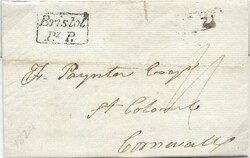 Bristol
Py P.
Fr. Paynter Esqr
St Columb
Cornwall